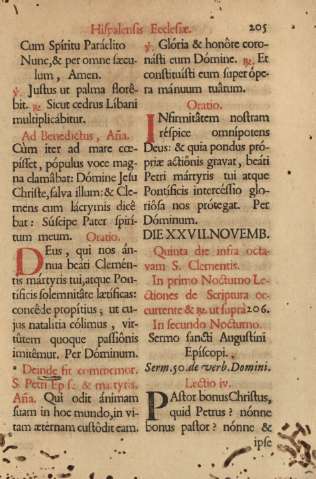 Hispalensis Ecclesiæ. 205
Cum Spíritu Paráclito
Nunc, & per omne sæcu-
lum, Amen.
℣. Justus ut palma florê-
bit. ℞. Sicut cedrus Libani
multiplicâbitur.
Ad Benedictus, Aña.
Cùm iter ad mare cœ-
pisset, pópulus voce mag-
na clamâbat: Dómine Jesu
Christe, salva illum: & Cle-
mens cum lácrymis dicê
bat: Súscipe Pater spíri-
tum meum. Oratio.
DEus, qui nos án-
nua beáti Clemén-
tis mártyris tui, atque Pon-
tíficis solemnitâte lætíficas:
concéde propítius; ut cu-
jus natalítia cólimus, vir-
tûtem quoque passiónis
imitêmur. Per Dóminum.
Deinde fit commemor.
S. Petri Ep se. & martyris.
Aña. Qui odit ánimam
suam in hoc mundo, in vi-
tam ætérnam custôdit eam.
℣. Glória & honôre coro-
násti eum Dómine. ℞. Et
constituísti eum super ópe-
ra mánuum tuârum.
Oratio.
INfirmitâtem nostram
réspice omnípotens
Deus: & quia pondus pró-
priæ actiónis gravat, beáti
Petri mártyris tui atque
Pontíficis intercéssio glo-
riósa nos prótegat. Per
Dóminum.
DIE XXVII. NOVEMB.
Quinta die infra octa-
vam S. Clementis.
In primo Nocturno Le-
ctiones de Scriptura oc-
currente & ℞. ut supra 206.
In secundo Nocturno.
Sermo sancti Augustini
Epíscopi.
Serm. 50. de verb. Domini.
Lectio iv.
PAstor bonus Christus,
quid Petrus? nónne
bonus pastor? nónne &
ipse